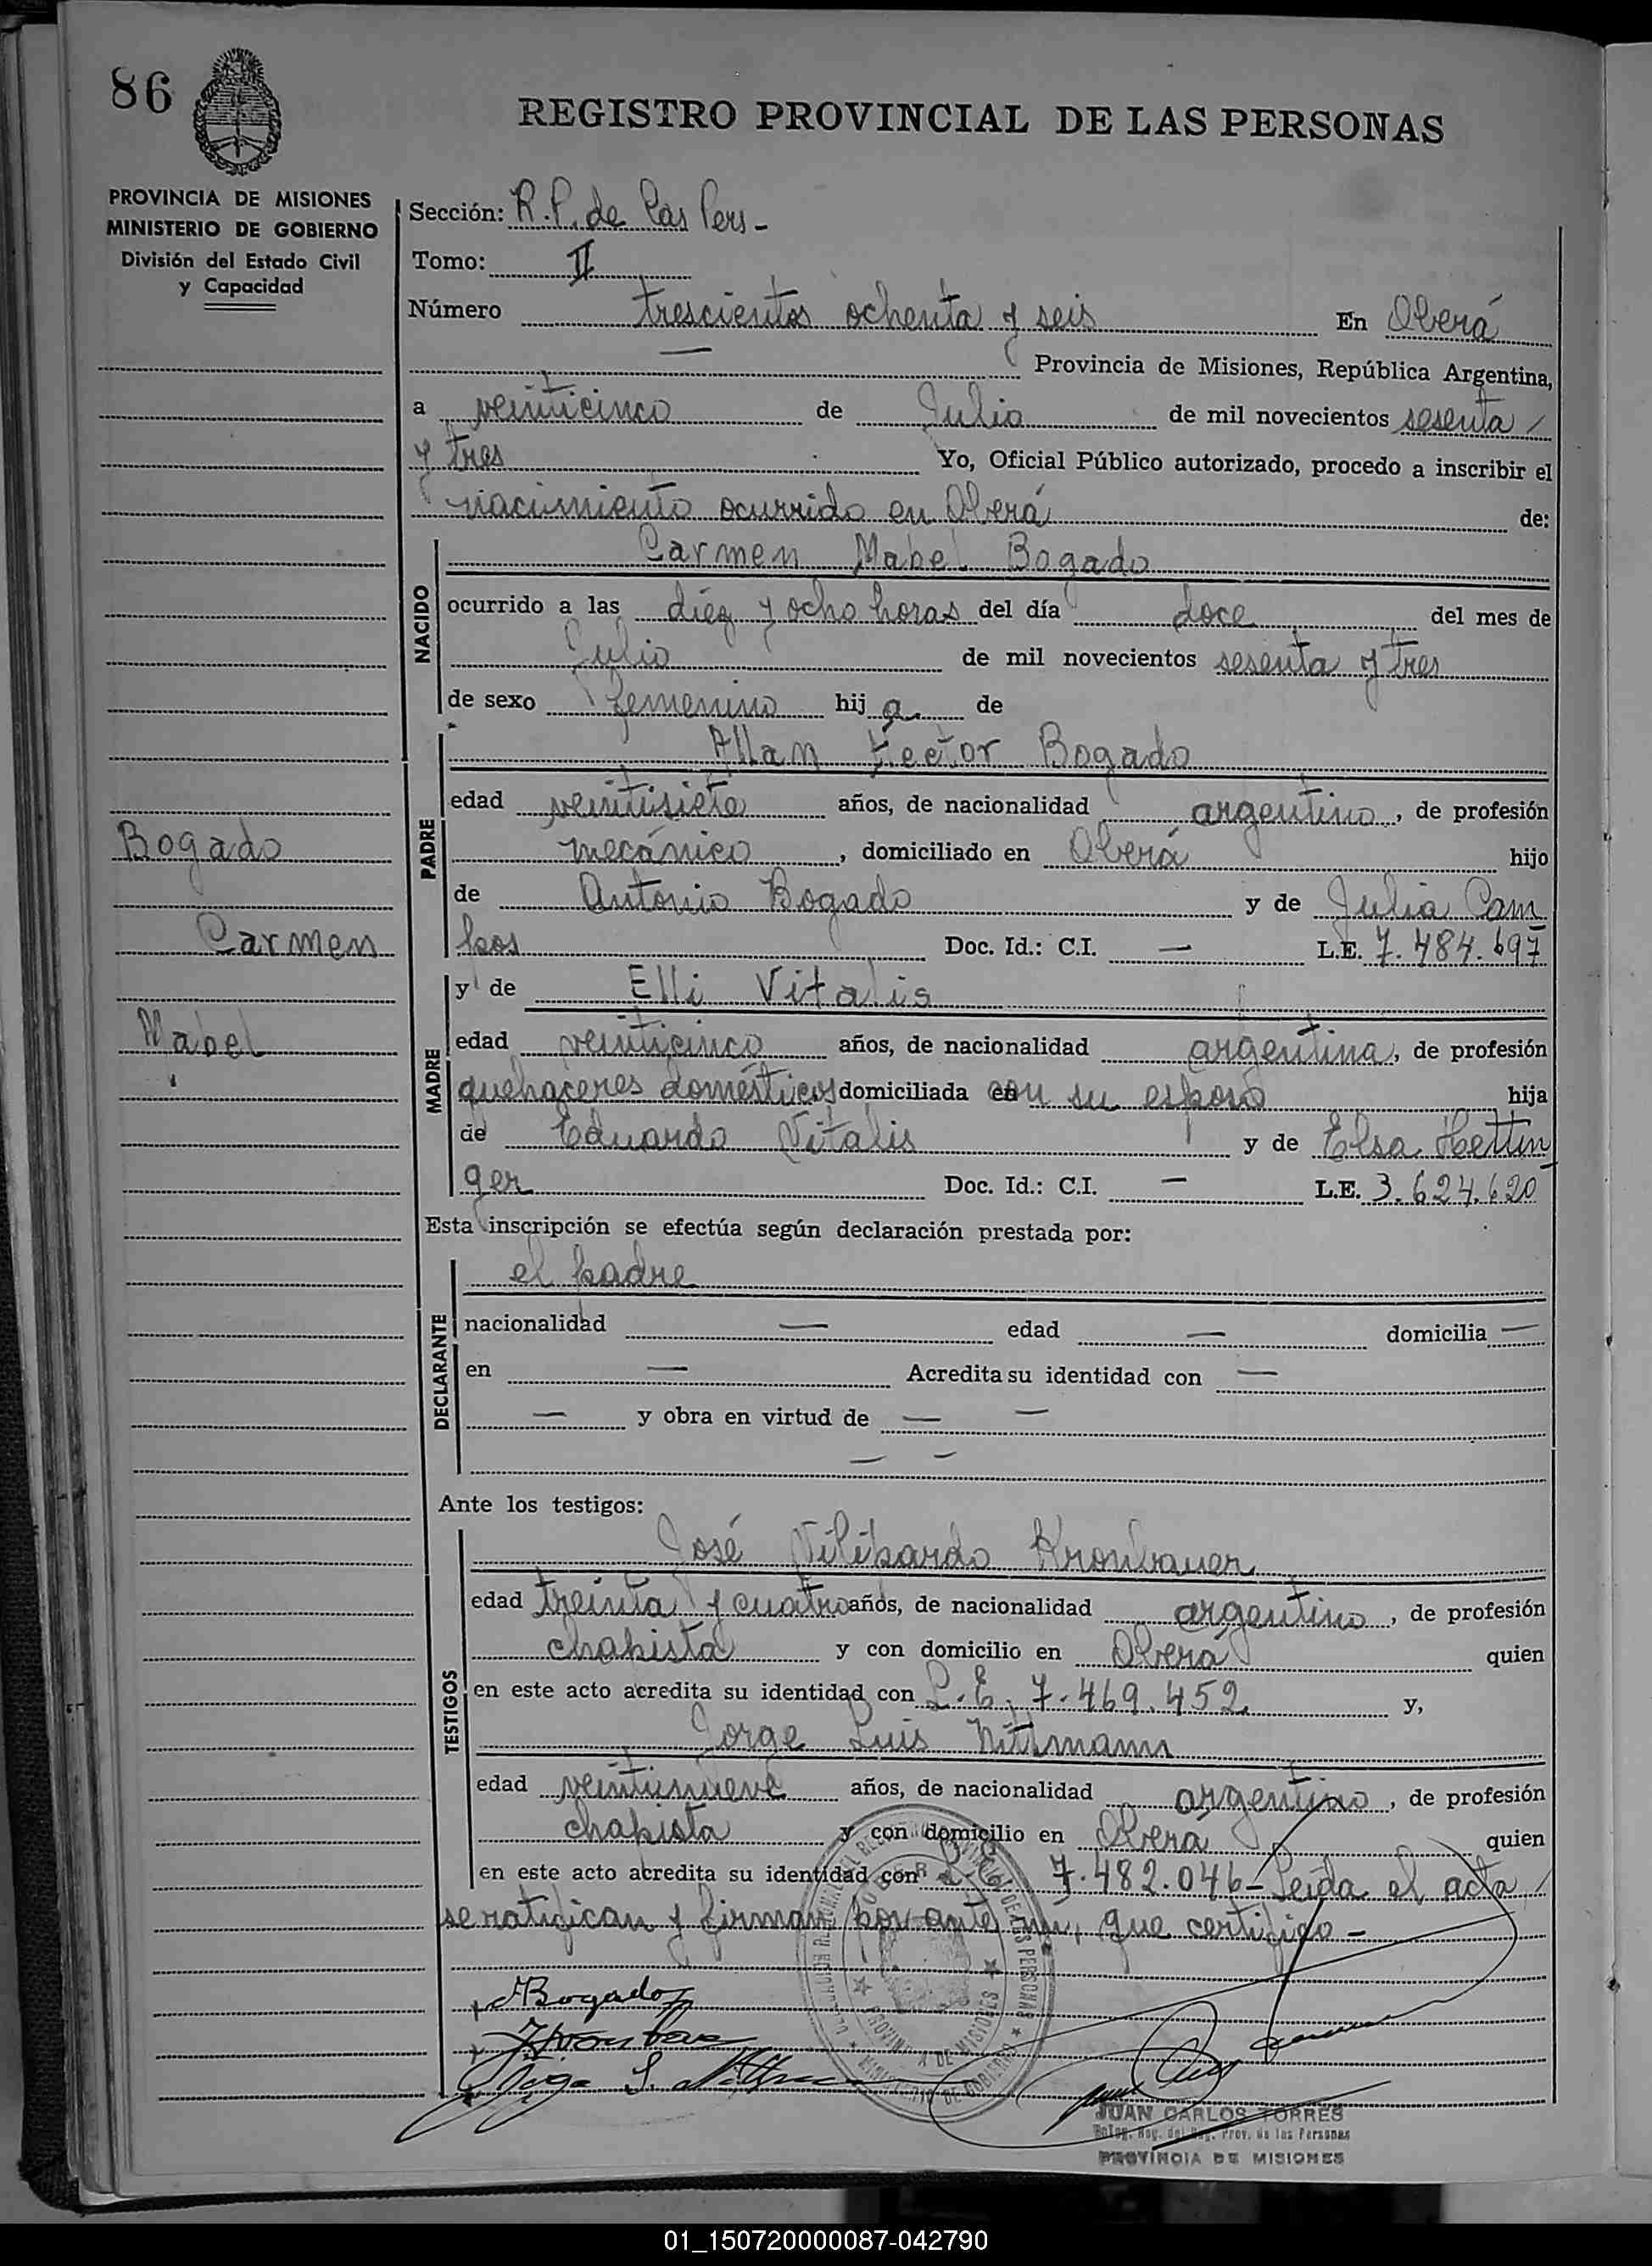 86
REGISTRO PROVINCIAL DE LAS PERSONAS
PROVINCIA DE MISIONES
MINISTERIO DE GOBIERNO
División del Estado Civil
y Capacidad
Sección: R.P. de las Pers -
Tomo: II
Número trescientos ochenta y seis En Oberá
— Provincia de Misiones, República Argentina,
a veinticinco de Julio de mil novecientos sesenta /
y tres Yo, Oficial Público autorizado, procedo a inscribir el
nacimiento ocurrido en Oberá de:
NACIDO
Carmen Mabel Bogado
ocurrido a las diez y ocho horas del día doce del mes de
Julio de mil novecientos sesenta y tres
de sexo femenino hij a de
PADRE
Allan Hector Bogado
edad veintisiete años, de nacionalidad argentino, de profesión
Bogado
mecánico, domiciliado en Oberá hijo
de Antonio Bogado y de Julia Cam
Carmen
pos Doc. Id.: C.I. — L.E. 7.484.697
MADRE
y de Elli Vitalis
Mabel
edad veinticinco años, de nacionalidad argentina, de profesión
quehaceres domésticos domiciliada con su esposo hija
de Eduardo Vitalis y de Elsa Hettin
ger Doc. Id.: C.I. — L.E. 3.624.620
Esta inscripción se efectúa según declaración prestada por:
DECLARANTE
el padre
nacionalidad — edad — domicilia —
en — Acredita su identidad con —
— y obra en virtud de — —
— —
Ante los testigos:
TESTIGOS
José Vilibardo Kronbauer
edad treinta y cuatro años, de nacionalidad argentino, de profesión
chapista y con domicilio en Oberá quien
en este acto acredita su identidad con L.E. 7.469.452 y,
Jorge Luis Nittmann
edad veintinueve años, de nacionalidad argentino, de profesión
chapista y con domicilio en Oberá quien
en este acto acredita su identidad con L.E. 7.482.046- Leída el acta /
se ratifican y firman por ante mí, que certifico -
Bogado
JUAN CARLOS TORRES
Deleg. Reg. del Reg. Prov. de las Personas
PROVINCIA DE MISIONES
01_150720000087-042790